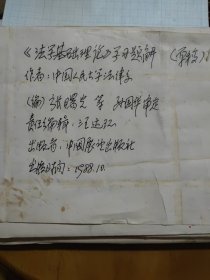 《法学基础理论》学习题解 (原稿)
作者：中国人民大学法律系
(编) 张曙光 等 孙国华 审定
责任编辑：汪达江
出版者：中国展望出版社
出版时间：1988.10.